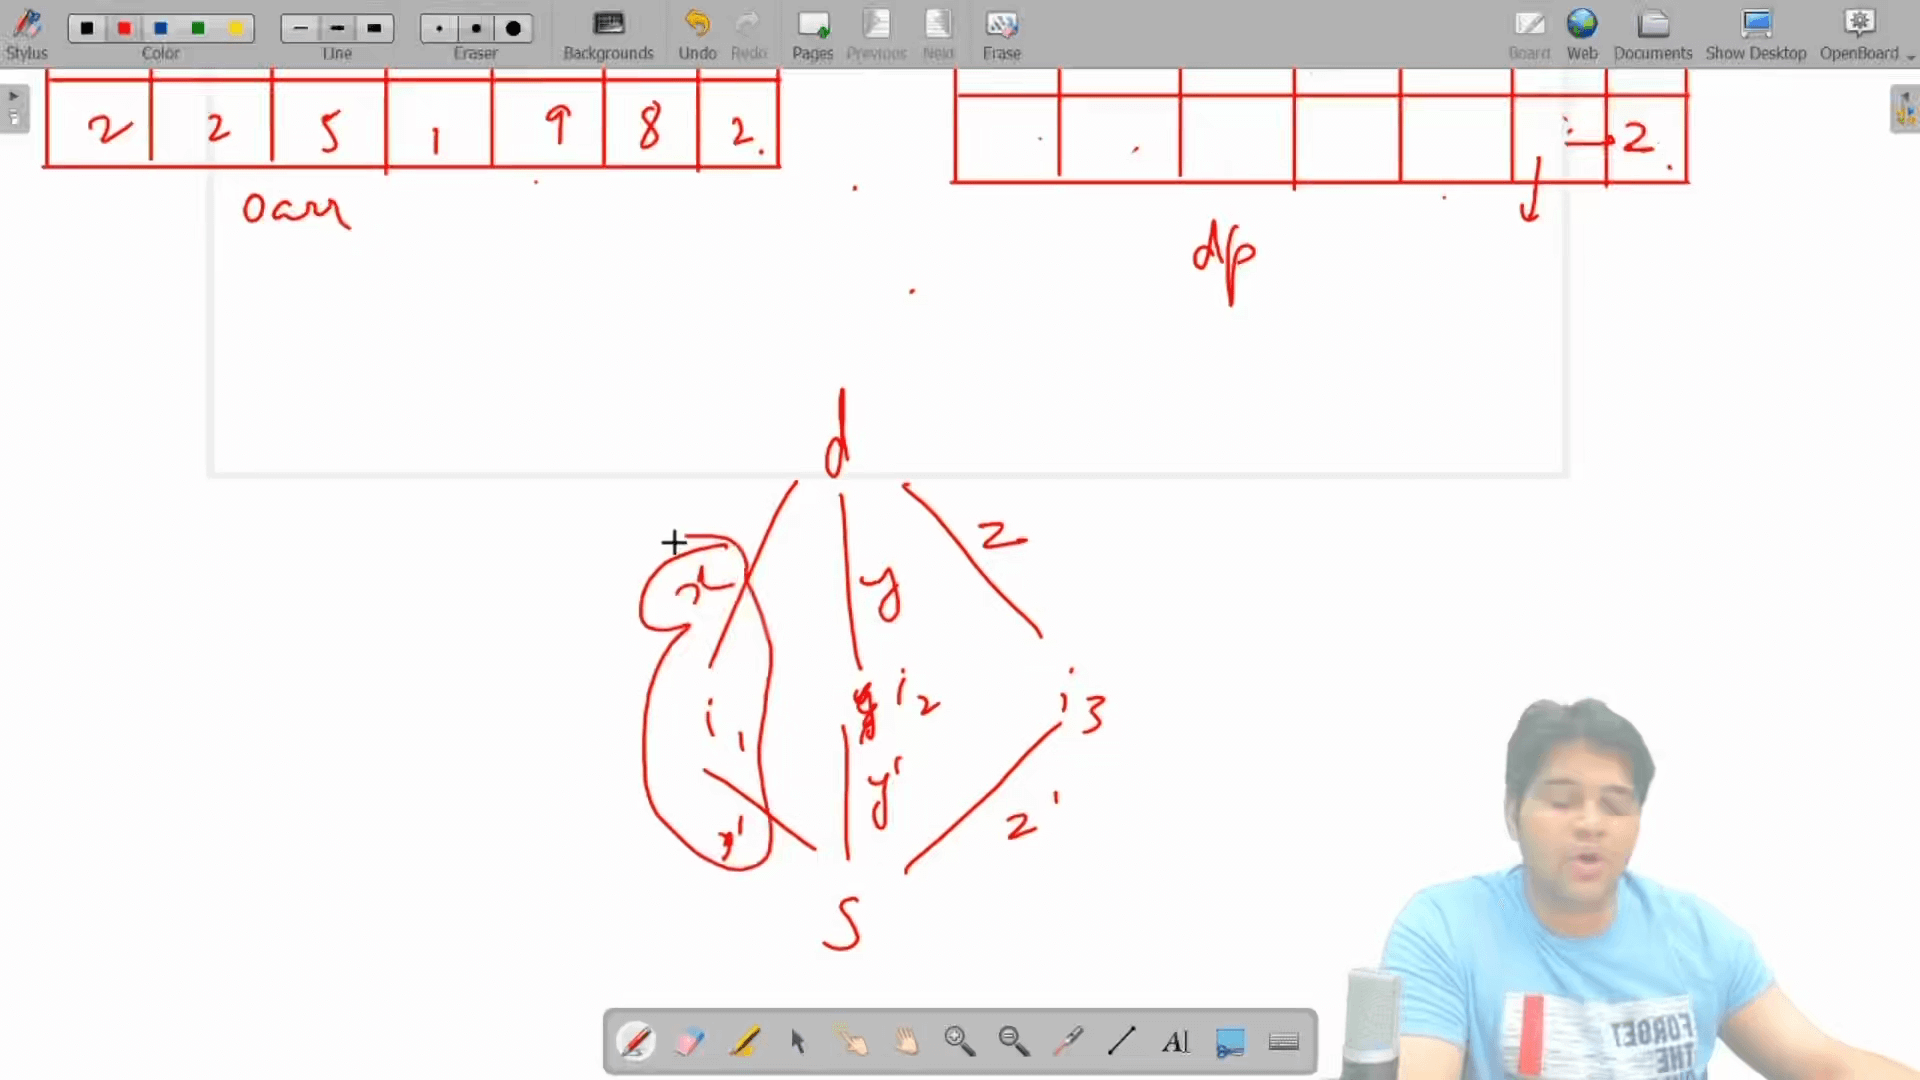 Stylus Color Line Eraser Backgrounds Undo Redo Pages Previous Next Erase Board Web Documents Show Desktop OpenBoard
2 2 5 1 9 8 2.
2.
oarr
dp
d
x y z
i1 i2 i3
x' y' z'
S
FORGET
THE
AI